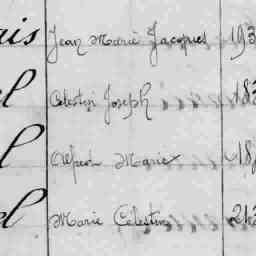 ris Jean Marie Jacques 193
el Celestin Joseph 183
l Marie 18
el Marie Celestin 213